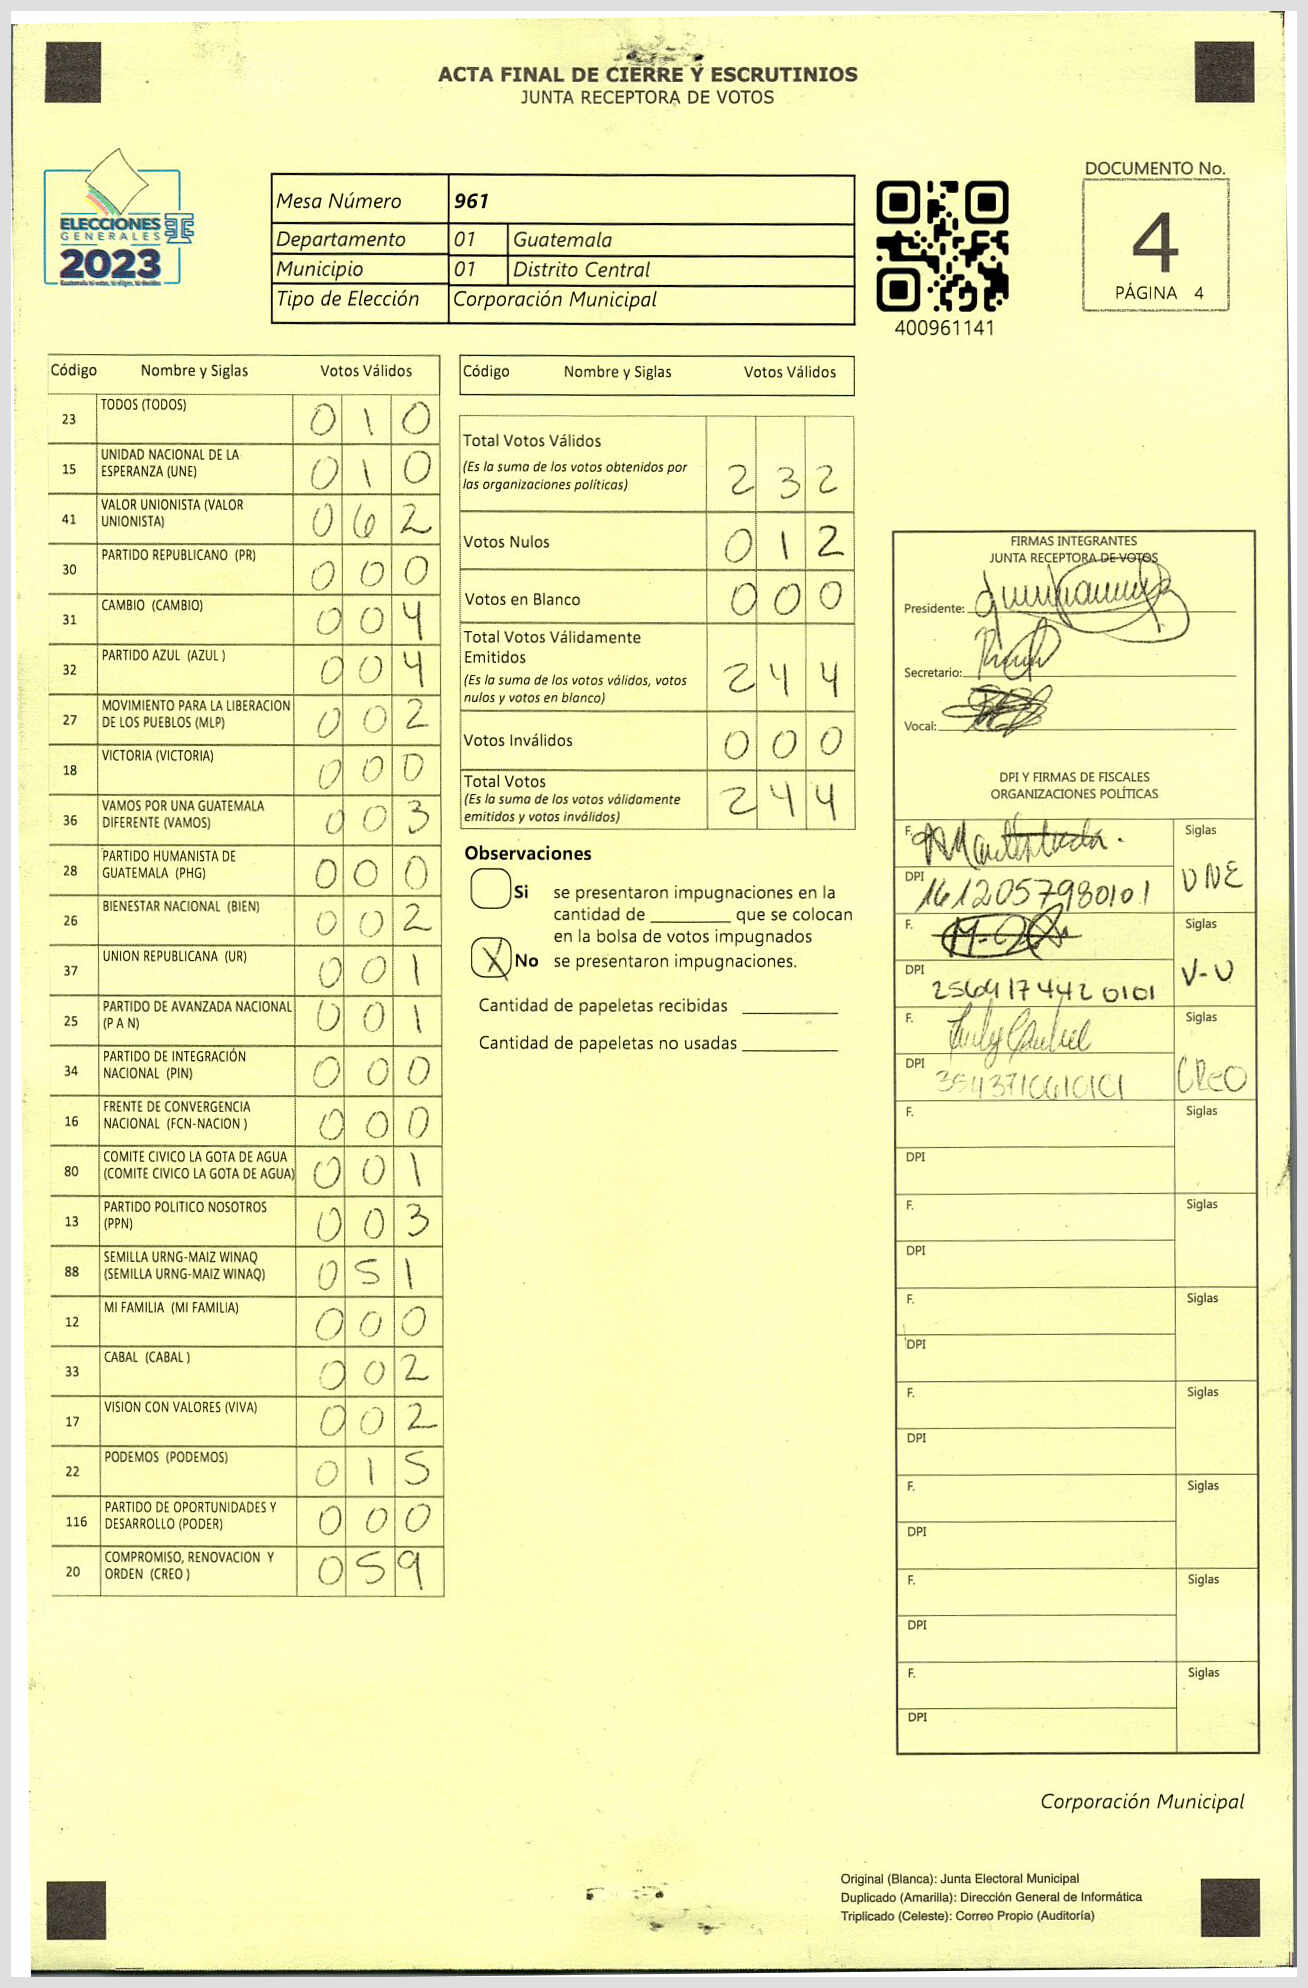 ACTA FINAL DE CIERRE Y ESCRUTINIOS
JUNTA RECEPTORA DE VOTOS
ELECCIONES
GENERALES
2023
Mesa Número 961
Departamento 01 Guatemala
Municipio 01 Distrito Central
Tipo de Elección Corporación Municipal
400961141
DOCUMENTO No.
4
PÁGINA 4
Código Nombre y Siglas Votos Válidos
23 TODOS (TODOS) 0 1 0
15 UNIDAD NACIONAL DE LA ESPERANZA (UNE) 0 1 0
41 VALOR UNIONISTA (VALOR UNIONISTA) 0 6 2
30 PARTIDO REPUBLICANO (PR) 0 0 0
31 CAMBIO (CAMBIO) 0 0 4
32 PARTIDO AZUL (AZUL ) 0 0 4
27 MOVIMIENTO PARA LA LIBERACION DE LOS PUEBLOS (MLP) 0 0 2
18 VICTORIA (VICTORIA) 0 0 0
36 VAMOS POR UNA GUATEMALA DIFERENTE (VAMOS) 0 0 3
28 PARTIDO HUMANISTA DE GUATEMALA (PHG) 0 0 0
26 BIENESTAR NACIONAL (BIEN) 0 0 2
37 UNION REPUBLICANA (UR) 0 0 1
25 PARTIDO DE AVANZADA NACIONAL (P A N) 0 0 1
34 PARTIDO DE INTEGRACIÓN NACIONAL (PIN) 0 0 0
16 FRENTE DE CONVERGENCIA NACIONAL (FCN-NACION ) 0 0 0
80 COMITE CIVICO LA GOTA DE AGUA (COMITE CIVICO LA GOTA DE AGUA) 0 0 1
13 PARTIDO POLITICO NOSOTROS (PPN) 0 0 3
88 SEMILLA URNG-MAIZ WINAQ (SEMILLA URNG-MAIZ WINAQ) 0 5 1
12 MI FAMILIA (MI FAMILIA) 0 0 0
33 CABAL (CABAL ) 0 0 2
17 VISION CON VALORES (VIVA) 0 0 2
22 PODEMOS (PODEMOS) 0 1 5
116 PARTIDO DE OPORTUNIDADES Y DESARROLLO (PODER) 0 0 0
20 COMPROMISO, RENOVACION Y ORDEN (CREO ) 0 5 9
Código Nombre y Siglas Votos Válidos
Total Votos Válidos
(Es la suma de los votos obtenidos por
las organizaciones políticas) 2 3 2
Votos Nulos 0 1 2
Votos en Blanco 0 0 0
Total Votos Válidamente
Emitidos
(Es la suma de los votos válidos, votos
nulos y votos en blanco) 2 4 4
Votos Inválidos 0 0 0
Total Votos
(Es la suma de los votos válidamente
emitidos y votos inválidos) 2 4 4
Observaciones
Si se presentaron impugnaciones en la
cantidad de ________ que se colocan
en la bolsa de votos impugnados
X No se presentaron impugnaciones.
Cantidad de papeletas recibidas ________
Cantidad de papeletas no usadas ________
FIRMAS INTEGRANTES
JUNTA RECEPTORA DE VOTOS
Presidente:
Secretario:
Vocal:
DPI Y FIRMAS DE FISCALES
ORGANIZACIONES POLÍTICAS
F. Siglas
DPI 1612057980101 UNE
F. Siglas
DPI 2564174420101 V-U
F. Siglas
DPI CREO
F. Siglas
DPI
F. Siglas
DPI
F. Siglas
DPI
F. Siglas
DPI
F. Siglas
DPI
F. Siglas
DPI
F. Siglas
DPI
Corporación Municipal
Original (Blanca): Junta Electoral Municipal
Duplicado (Amarilla): Dirección General de Informática
Triplicado (Celeste): Correo Propio (Auditoría)